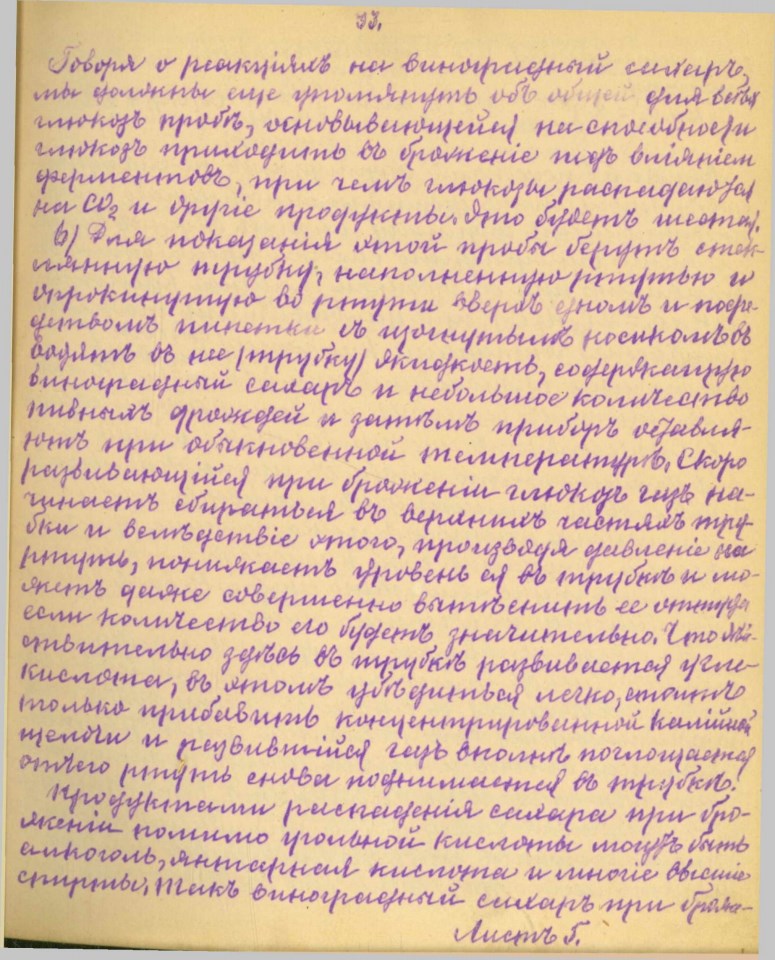 33.
Говоря о реакціяхъ на виноградный сахаръ,
мы должны еще упомянуть объ общей для всѣхъ
глюкозъ пробѣ, основывающейся на способности
глюкозъ приходить въ броженіе подъ вліяніемъ
ферментовъ, при чемъ глюкозы распадаются
на CO₂ и другіе продукты. Это будетъ шестая.
6) Для показанія этой пробы берутъ стек-
лянную трубку, наполненную ртутью и
опрокинутую во ртути вверхъ дномъ и посре-
дствомъ пипетки съ изогнутымъ носикомъ в
водятъ въ нее (трубку) жидкость, содержащую
виноградный сахаръ и небольшое количество
пивныхъ дрождей и затѣмъ приборъ оставля-
ютъ при обыкновенной температурѣ. Скоро
развивающійся при броженіи глюкозъ газъ на-
чинаетъ сбираться въ верхнихъ частяхъ тру-
бки и вслѣдствіе этого, производя давленіе на
ртуть, понижаетъ уровень ея въ трубкѣ и мо-
жетъ даже совершенно вытѣснить ее оттуда
если количество его будетъ значительно. Что дѣй-
ствительно здѣсь въ трубкѣ развивается угле-
кислота, въ этомъ убѣдиться легко, стоитъ
только прибавить концентрированной калійной
щелочи и развившійся газъ вполнѣ поглощается
отчего ртуть снова поднимается въ трубкѣ.
Продуктами распаденія сахара при бро-
женіи помимо угольной кислоты могутъ быть
алкоголь, янтарная кислота и многіе высшіе
спирты. Такъ виноградный сахаръ при броже-
Листъ 5.